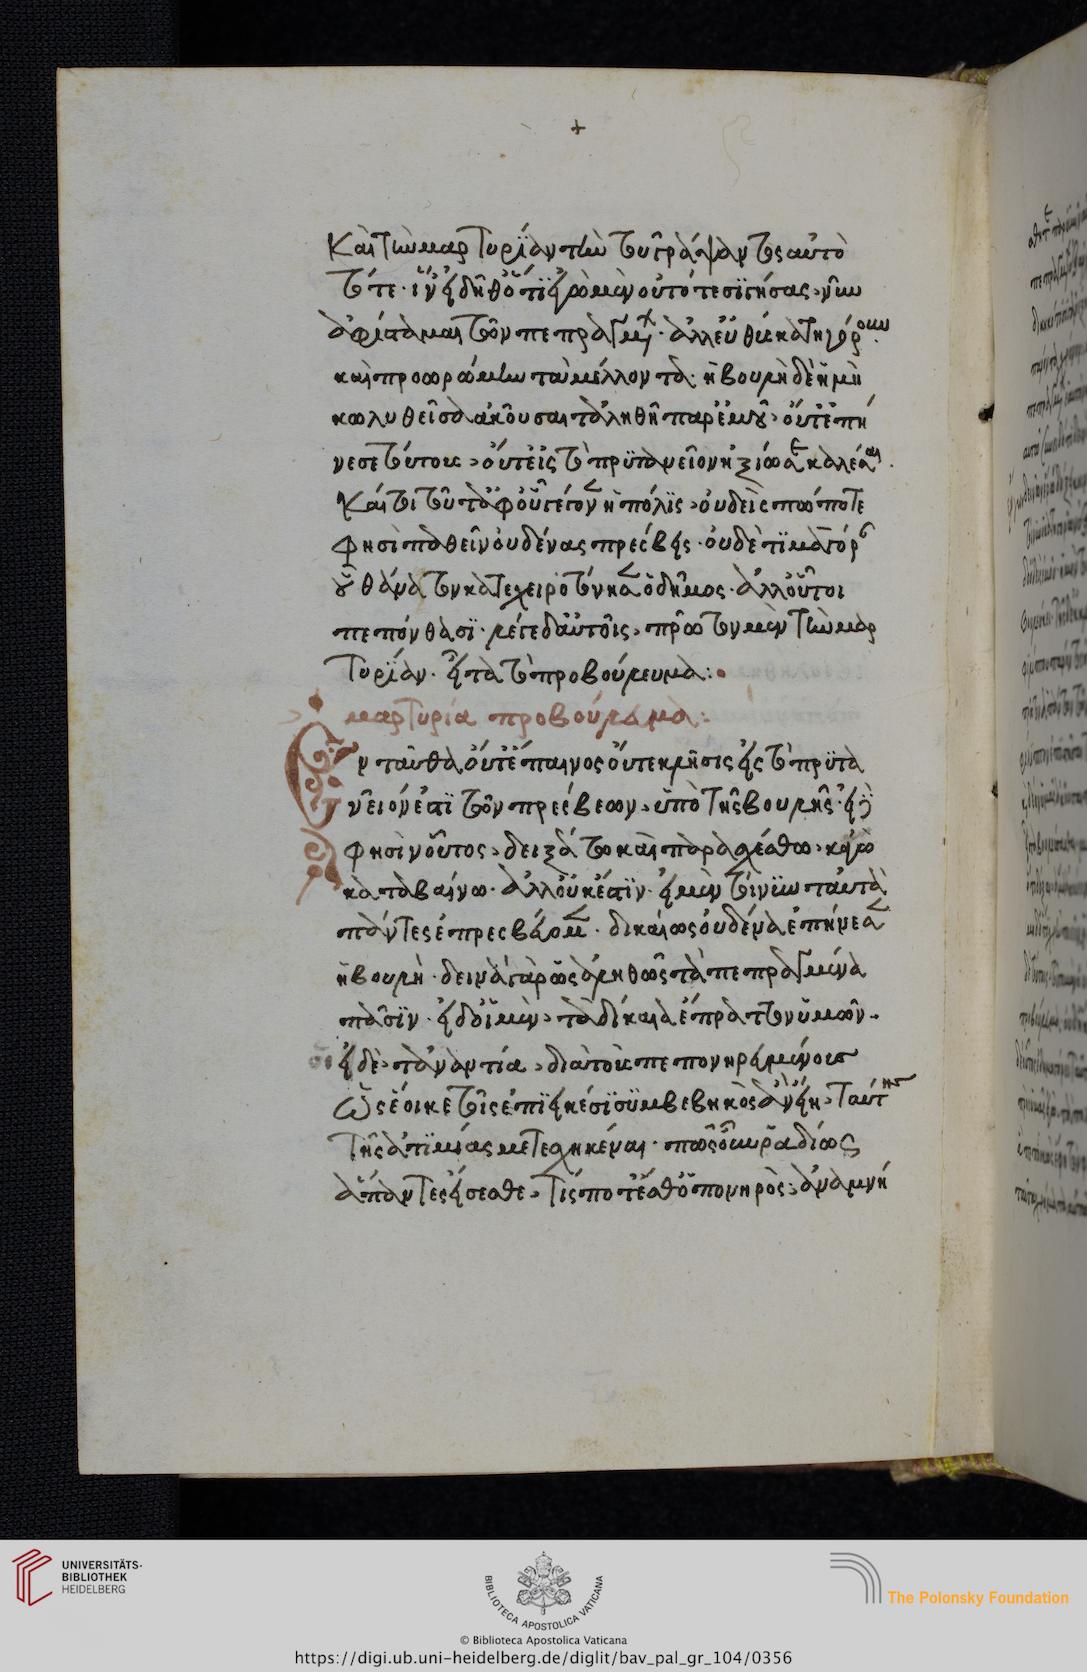 +
καὶ τὴν μαρτυρίαν τὴν τοῦ γράψαντος αὐτὸ
τότε· ἵν' εἰδῆθ' ὅτι ἐγὼ μὲν οὐ τότε σιγήσας, νῦν
ἀφίσταμαι τῶν πεπραγμ· ἀλλ' εὐθὺς κατηγόρουν
καὶ προεωρώμην τὰ μέλλοντα· ἡ βουλὴ δὲ ἡ μὴ
κωλυθεῖσα ἀκοῦσαι τἀληθῆ παρ' ἐμοῦ, οὔτ' ἐπή
νεσε τούτους, οὔτ' εἰς τὸ πρυτανεῖον ἠξίωσε καλέσαι.
καίτοι τοῦτο ἀφ' οὗ γέγονεν ἡ πόλις, οὐδεὶς πώποτέ
φησι παθεῖν οὐδένας πρέσβεις· οὐδὲ τιμαγόρ
οὗ θάνατον κατεχειροτόνησεν ὁ δῆμος· ἀλλ' οὗτοι
πεπόνθασι· λέγε δ' αὐτοῖς, πρῶτον μὲν τὴν μαρ
τυρίαν· εἶτα τὸ προβούλευμα:
μαρτυρία προβούλευμα:
Ἐνταῦθα οὔτ' ἔπαινος οὔτε κλῆσις εἰς τὸ πρυτα
νεῖόν ἐστι τῶν πρέσβεων, ὑπὸ τῆς βουλῆς· εἰ δέ
φησιν οὗτος, δειξάτω καὶ παρασχέσθω, κἀγὼ
καταβαίνω· ἀλλ' οὐκ ἔστιν· εἰ μὲν τοίνυν ταῦτα
πάντες ἐπρεσβεύομεν· δικαίως οὐδένα ἐπήνεσεν
ἡ βουλή· δεινὰ γὰρ ὡς ἀληθῶς τὰ πεπραγμένα
πᾶσιν· εἰ δ' οἱ μὲν, τὰ δίκαια ἔπραττον ὑμῶν
οἱ δὲ, τἀναντία, διὰ τοὺς πεπονηρευμένους
ὡς ἔοικε τοῖς ἐπιεικέσι συμβεβηκὸς ἂν εἴη, ταύτης
τῆς ἀτιμίας μετεσχηκέναι· πῶς οὖν ῥᾳδίως
ἅπαντες εἴσεσθε, τίς ποτ' ἔσθ' ὁ πονηρός; ἀναμνή
UNIVERSITÄTS-
BIBLIOTHEK
HEIDELBERG
BIBLIOTECA APOSTOLICA VATICANA
The Polonsky Foundation
© Biblioteca Apostolica Vaticana
https://digi.ub.uni-heidelberg.de/diglit/bav_pal_gr_104/0356